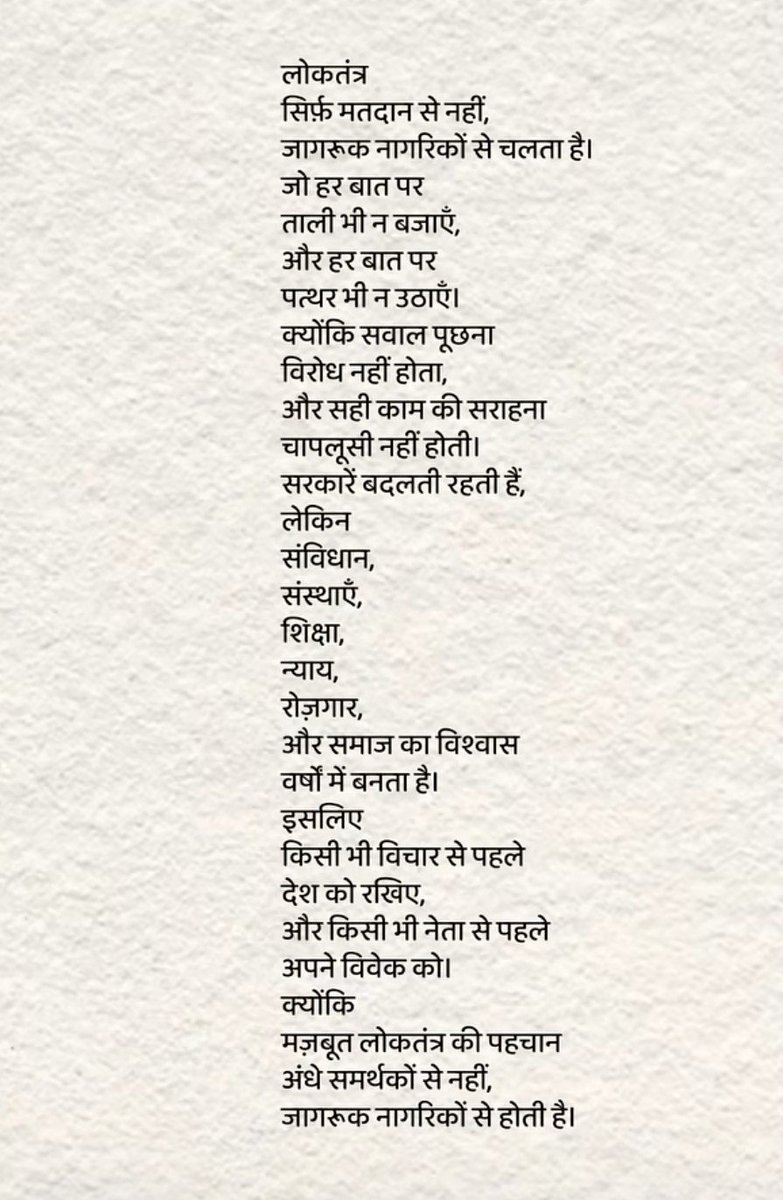 लोकतंत्र
सिर्फ़ मतदान से नहीं,
जागरूक नागरिकों से चलता है।
जो हर बात पर
ताली भी न बजाएँ,
और हर बात पर
पत्थर भी न उठाएँ।
क्योंकि सवाल पूछना
विरोध नहीं होता,
और सही काम की सराहना
चापलूसी नहीं होती।
सरकारें बदलती रहती हैं,
लेकिन
संविधान,
संस्थाएँ,
शिक्षा,
न्याय,
रोज़गार,
और समाज का विश्वास
वर्षों में बनता है।
इसलिए
किसी भी विचार से पहले
देश को रखिए,
और किसी भी नेता से पहले
अपने विवेक को।
क्योंकि
मज़बूत लोकतंत्र की पहचान
अंधे समर्थकों से नहीं,
जागरूक नागरिकों से होती है।